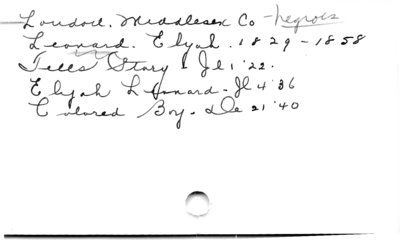 London. Middlesex Co - negroes
Leonard. Elijah. 1829-1858
Tells Story - Jl 1 '22.
Elijah Leonard - Jl 4 '36
Colored Boy - De 21 '40